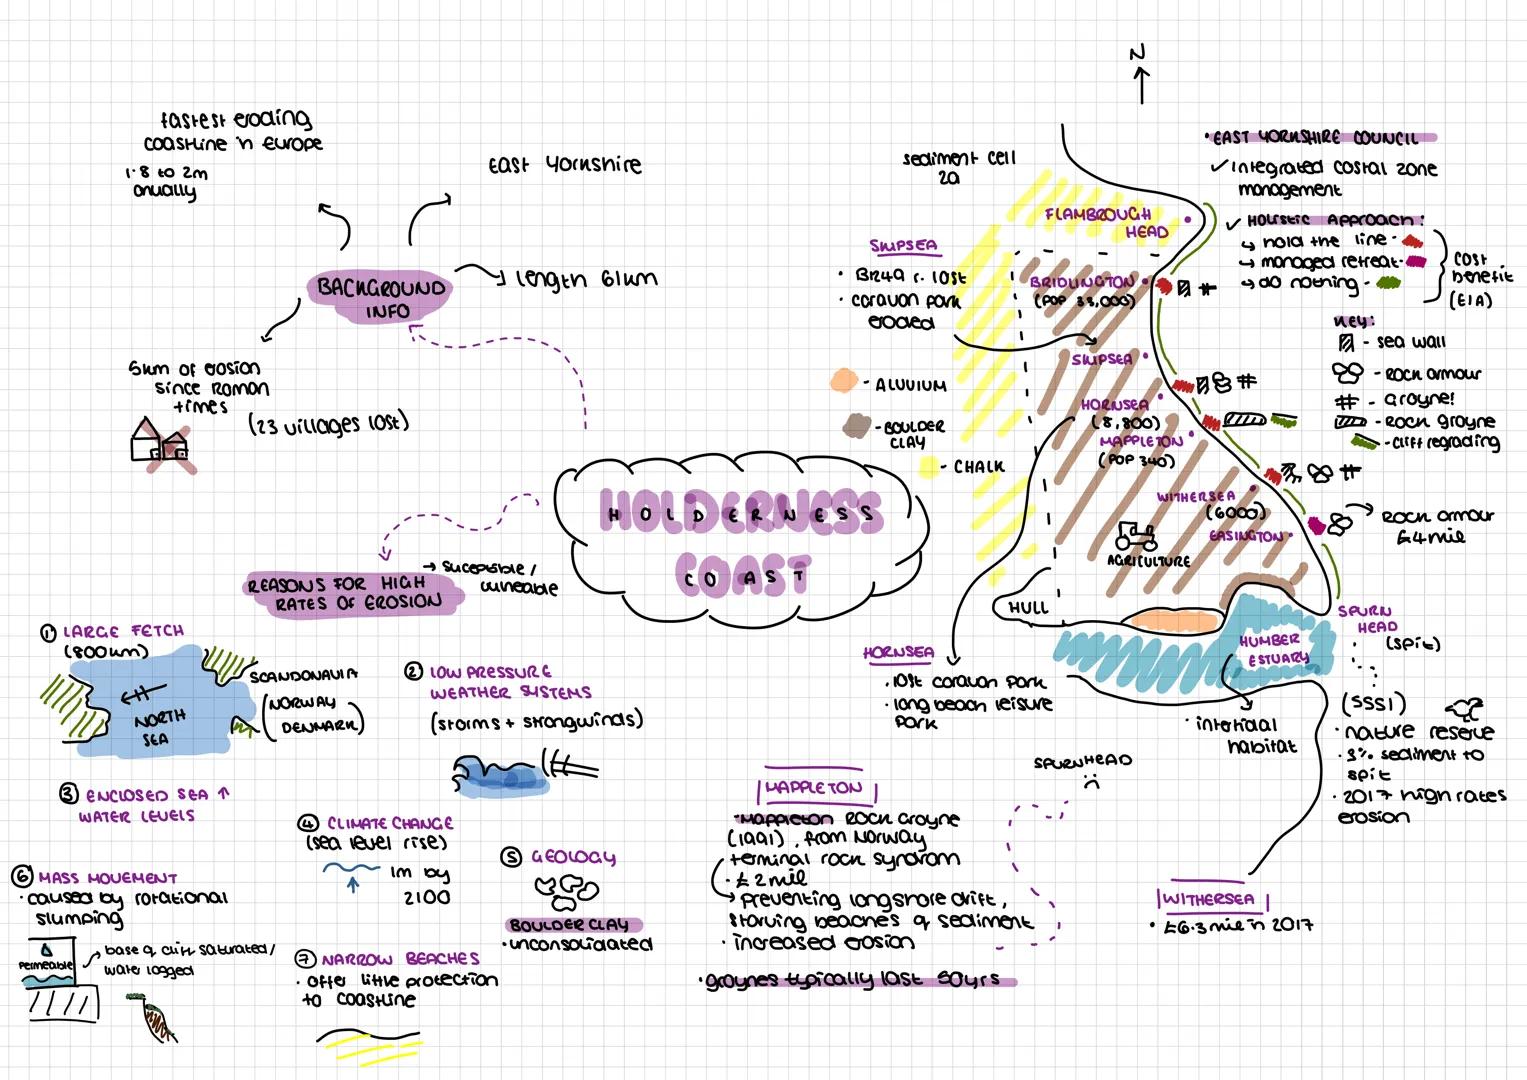 N
fastest eroding
coastline in Europe
1.8 to 2m
anually
East Yorkshire
BACKGROUND
INFO
length 61km
5km of erosion
since Roman
times
(23 villages lost)
HOLDERNESS
COAST
REASONS FOR HIGH
RATES OF EROSION
→ suceptible /
vulneable
① LARGE FETCH
(800km)
SCANDONAVIA
(NORWAY
DENMARK)
NORTH
SEA
② LOW PRESSURE
WEATHER SYSTEMS
(storms + strongwinds)
③ ENCLOSED SEA ↑
WATER LEVELS
④ CLIMATE CHANGE
(sea level rise)
1m by
2100
⑤ GEOLOGY
BOULDER CLAY
· unconsolidated
⑥ MASS MOVEMENT
· caused by rotational
slumping
Permeable
base of cliff saturated/
water logged
⑦ NARROW BEACHES
· offer little protection
to coastline
sediment cell
2a
SKIPSEA
· B1242 r. lost
· caravan park
eroded
- ALUVIUM
- BOULDER
CLAY
- CHALK
FLAMBROUGH
HEAD
BRIDLINGTON
(POP 33,000)
SKIPSEA
HORNSEA
(8,800)
MAPPLETON
(POP 340)
WITHERSEA
(6000)
EASINGTON
AGRICULTURE
HULL
HUMBER
ESTUARY
SPURN
HEAD
(spit)
· EAST YORKSHIRE COUNCIL
✓ Integrated costal zone
management
✓ Holistic Approach:
↳ hold the line -
↳ managed retreat -
↳ do nothing -
cost
benefit
(EIA)
KEY:
- sea wall
- Rock armour
- Groyne!
- Rock groyne
- cliff regrading
Rock armour
£4mil
HORNSEA
· lost caravan park
· long beach leisure
park
· intertidal
habitat
(SSSI)
· nature reserve
· 3% sediment to
spit
· 2017 high rates
erosion
SPURNHEAD
MAPPLETON
· Mappleton Rock Groyne
(1991), from Norway
terminal rock syndrom
· £2mil
→ preventing longshore drift,
starving beaches of sediment
· increased erosion
· groynes typically last 50yrs
WITHERSEA
· £6.3mil in 2017